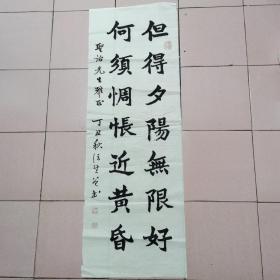 但得夕陽無限好
何須惆悵近黃昏
聖治先生雅正
丁丑秋